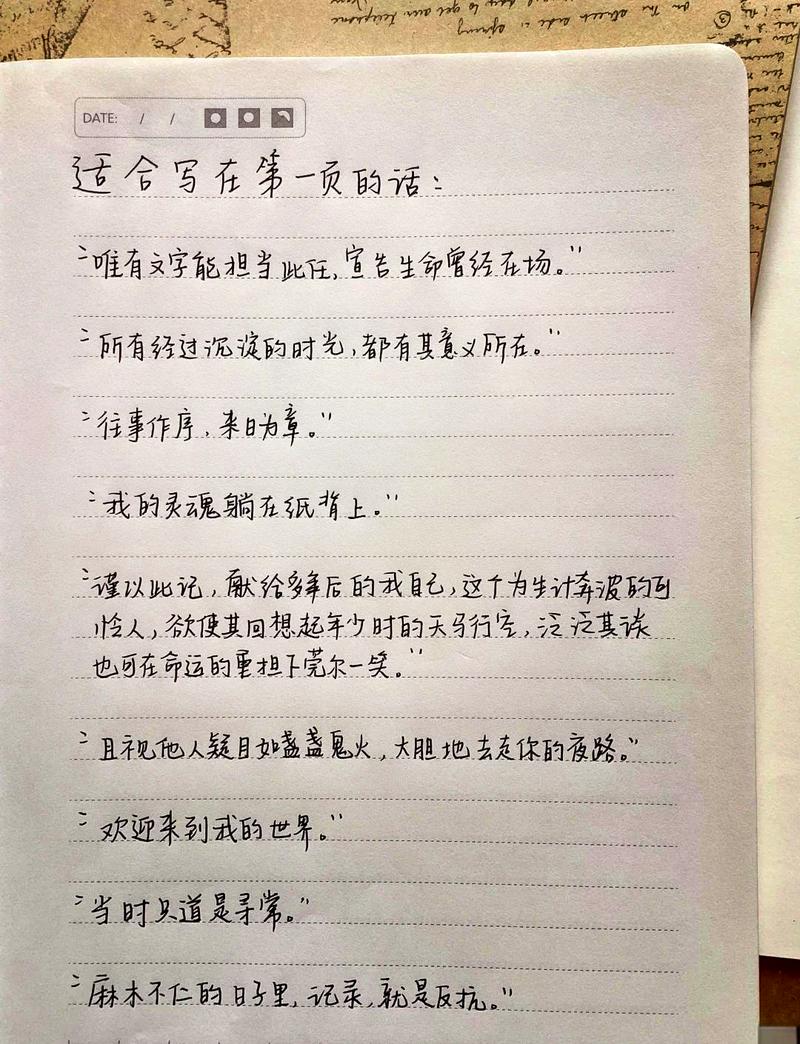 DATE: / /
适合写在第一页的话：
“唯有文字能担当此任，宣告生命曾经在场。”
“所有经过沉淀的时光，都有其意义所在。”
“往事作序，来日为章。”
“我的灵魂躺在纸背上。”
“谨以此记，献给多年后的我自己，这个为生计奔波的可
怜人，欲使其回想起年少时的天马行空，泛泛其谈
也可在命运的重担下莞尔一笑。”
“且视他人疑目如盏盏鬼火，大胆地去走你的夜路。”
“欢迎来到我的世界。”
“当时只道是寻常。”
“麻木不仁的日子里，记录，就是反抗。”